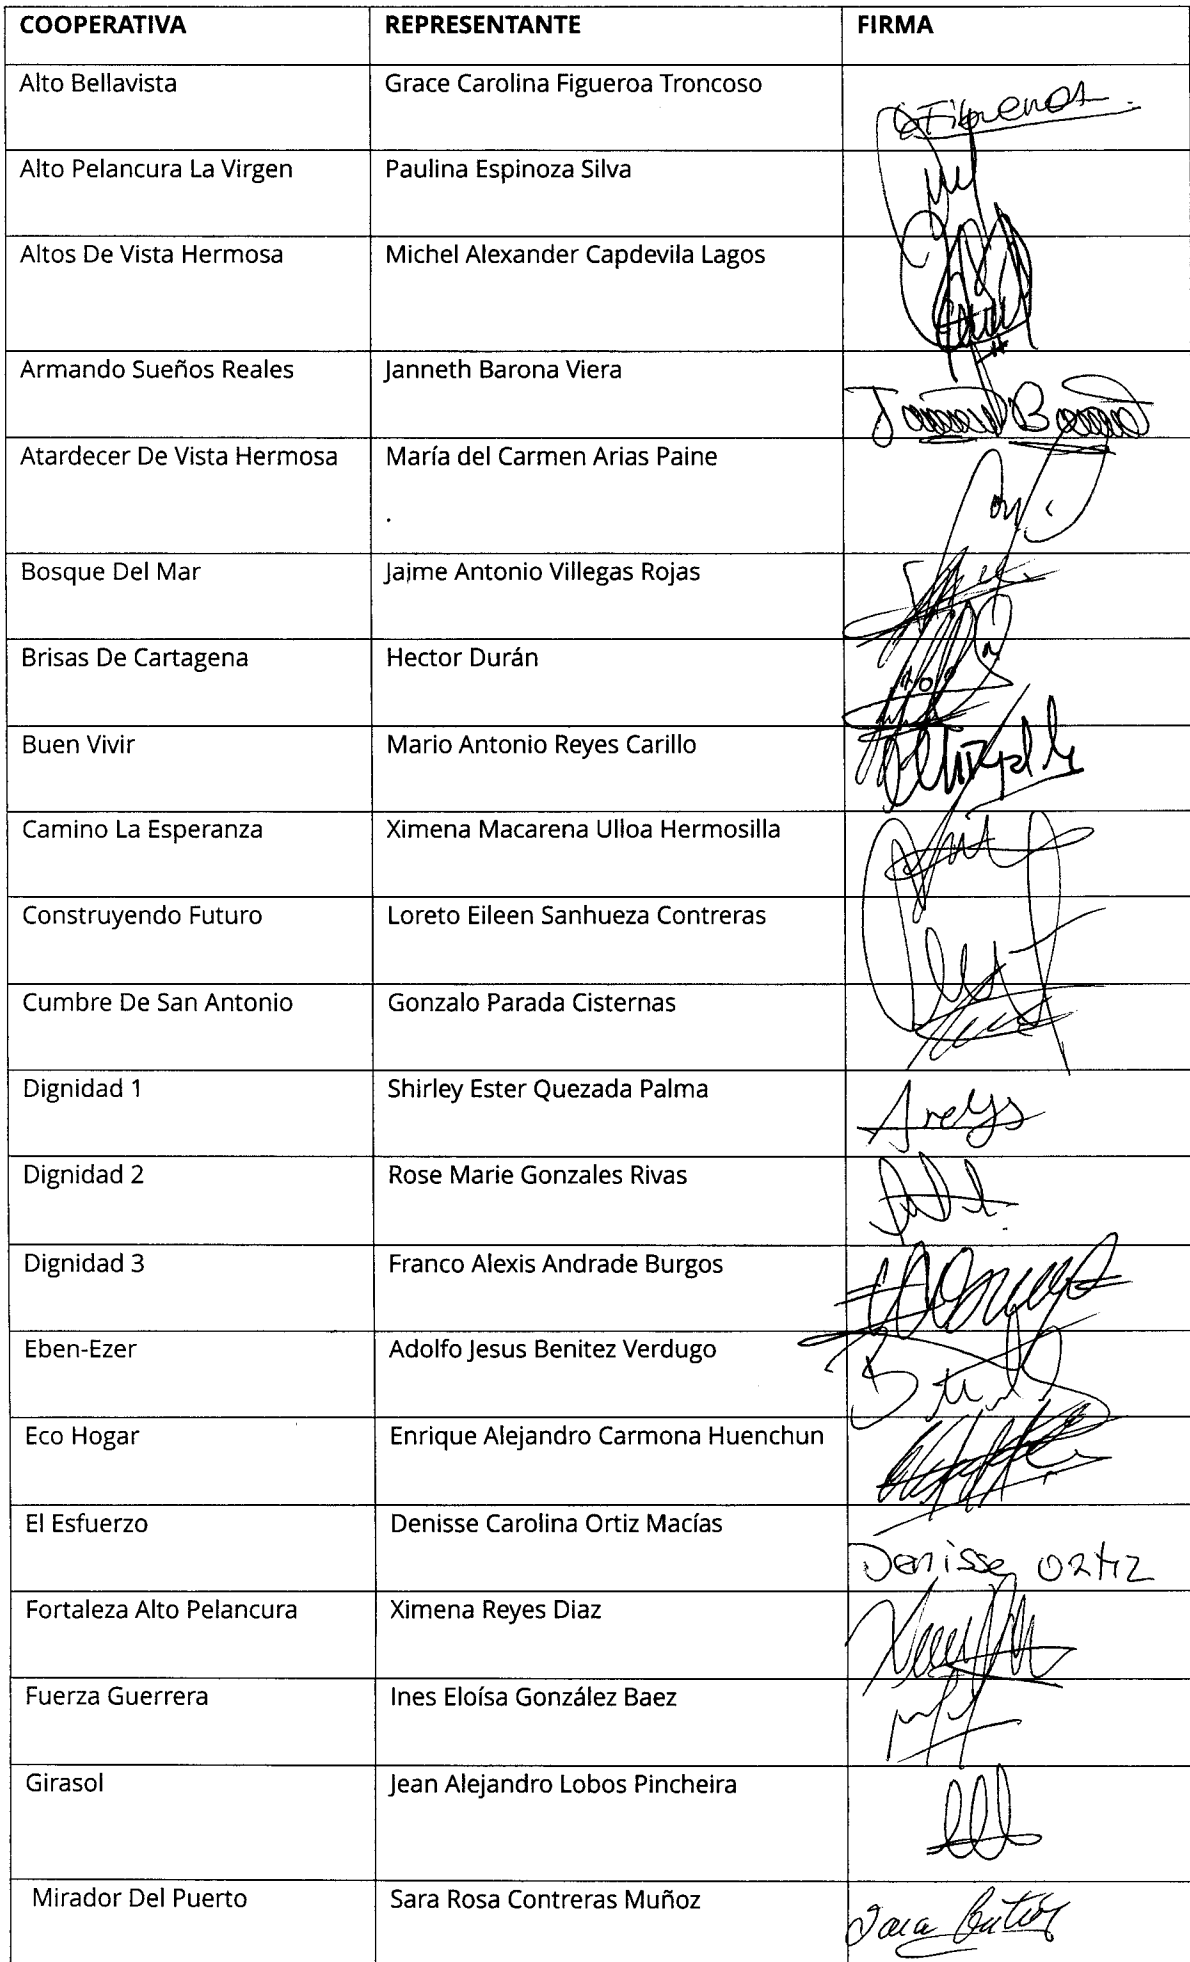 COOPERATIVA REPRESENTANTE FIRMA
Alto Bellavista Grace Carolina Figueroa Troncoso
Alto Pelancura La Virgen Paulina Espinoza Silva
Altos De Vista Hermosa Michel Alexander Capdevila Lagos
Armando Sueños Reales Janneth Barona Viera
Atardecer De Vista Hermosa María del Carmen Arias Paine
.
Bosque Del Mar Jaime Antonio Villegas Rojas
Brisas De Cartagena Hector Durán
Buen Vivir Mario Antonio Reyes Carillo
Camino La Esperanza Ximena Macarena Ulloa Hermosilla
Construyendo Futuro Loreto Eileen Sanhueza Contreras
Cumbre De San Antonio Gonzalo Parada Cisternas
Dignidad 1 Shirley Ester Quezada Palma Arelys
Dignidad 2 Rose Marie Gonzales Rivas
Dignidad 3 Franco Alexis Andrade Burgos
Eben-Ezer Adolfo Jesus Benitez Verdugo
Eco Hogar Enrique Alejandro Carmona Huenchun
El Esfuerzo Denisse Carolina Ortiz Macías Denisse Ortiz
Fortaleza Alto Pelancura Ximena Reyes Diaz
Fuerza Guerrera Ines Eloísa González Baez
Girasol Jean Alejandro Lobos Pincheira
Mirador Del Puerto Sara Rosa Contreras Muñoz Sara